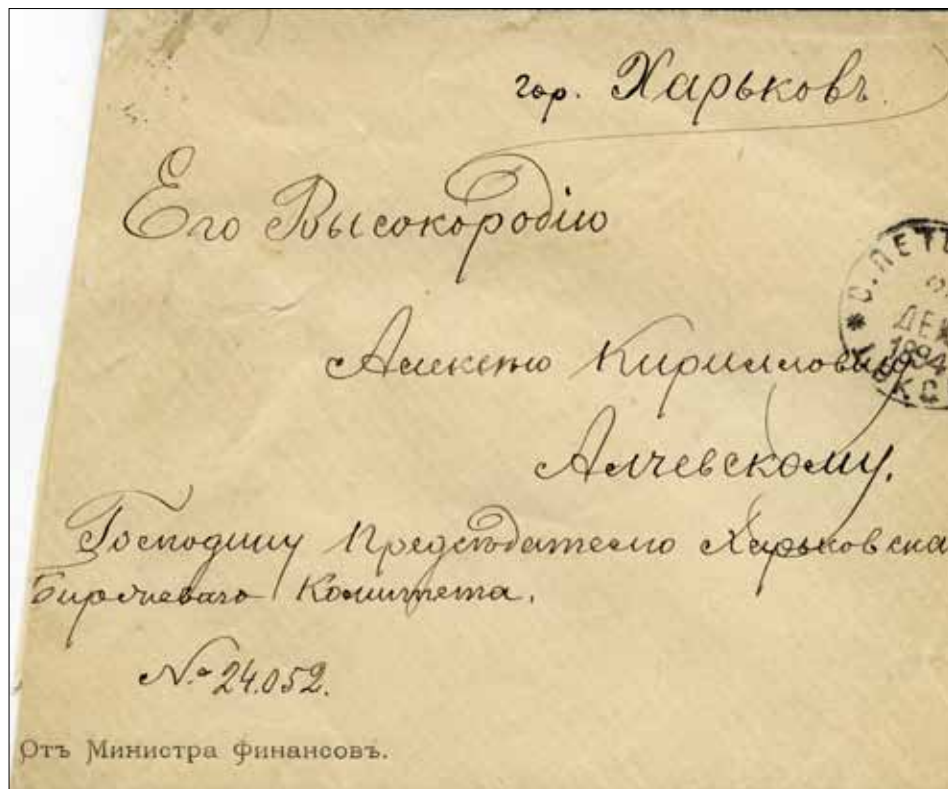 гор. Харьковъ.
Его Высокородію
С. ПЕТЕ
ДЕК
1894
Алексѣю Кирилловичу
Алчевскому.
Господину Предсѣдателю Харьковска
Биржеваго Комитета.
№ 24.052.
Отъ Министра Финансовъ.